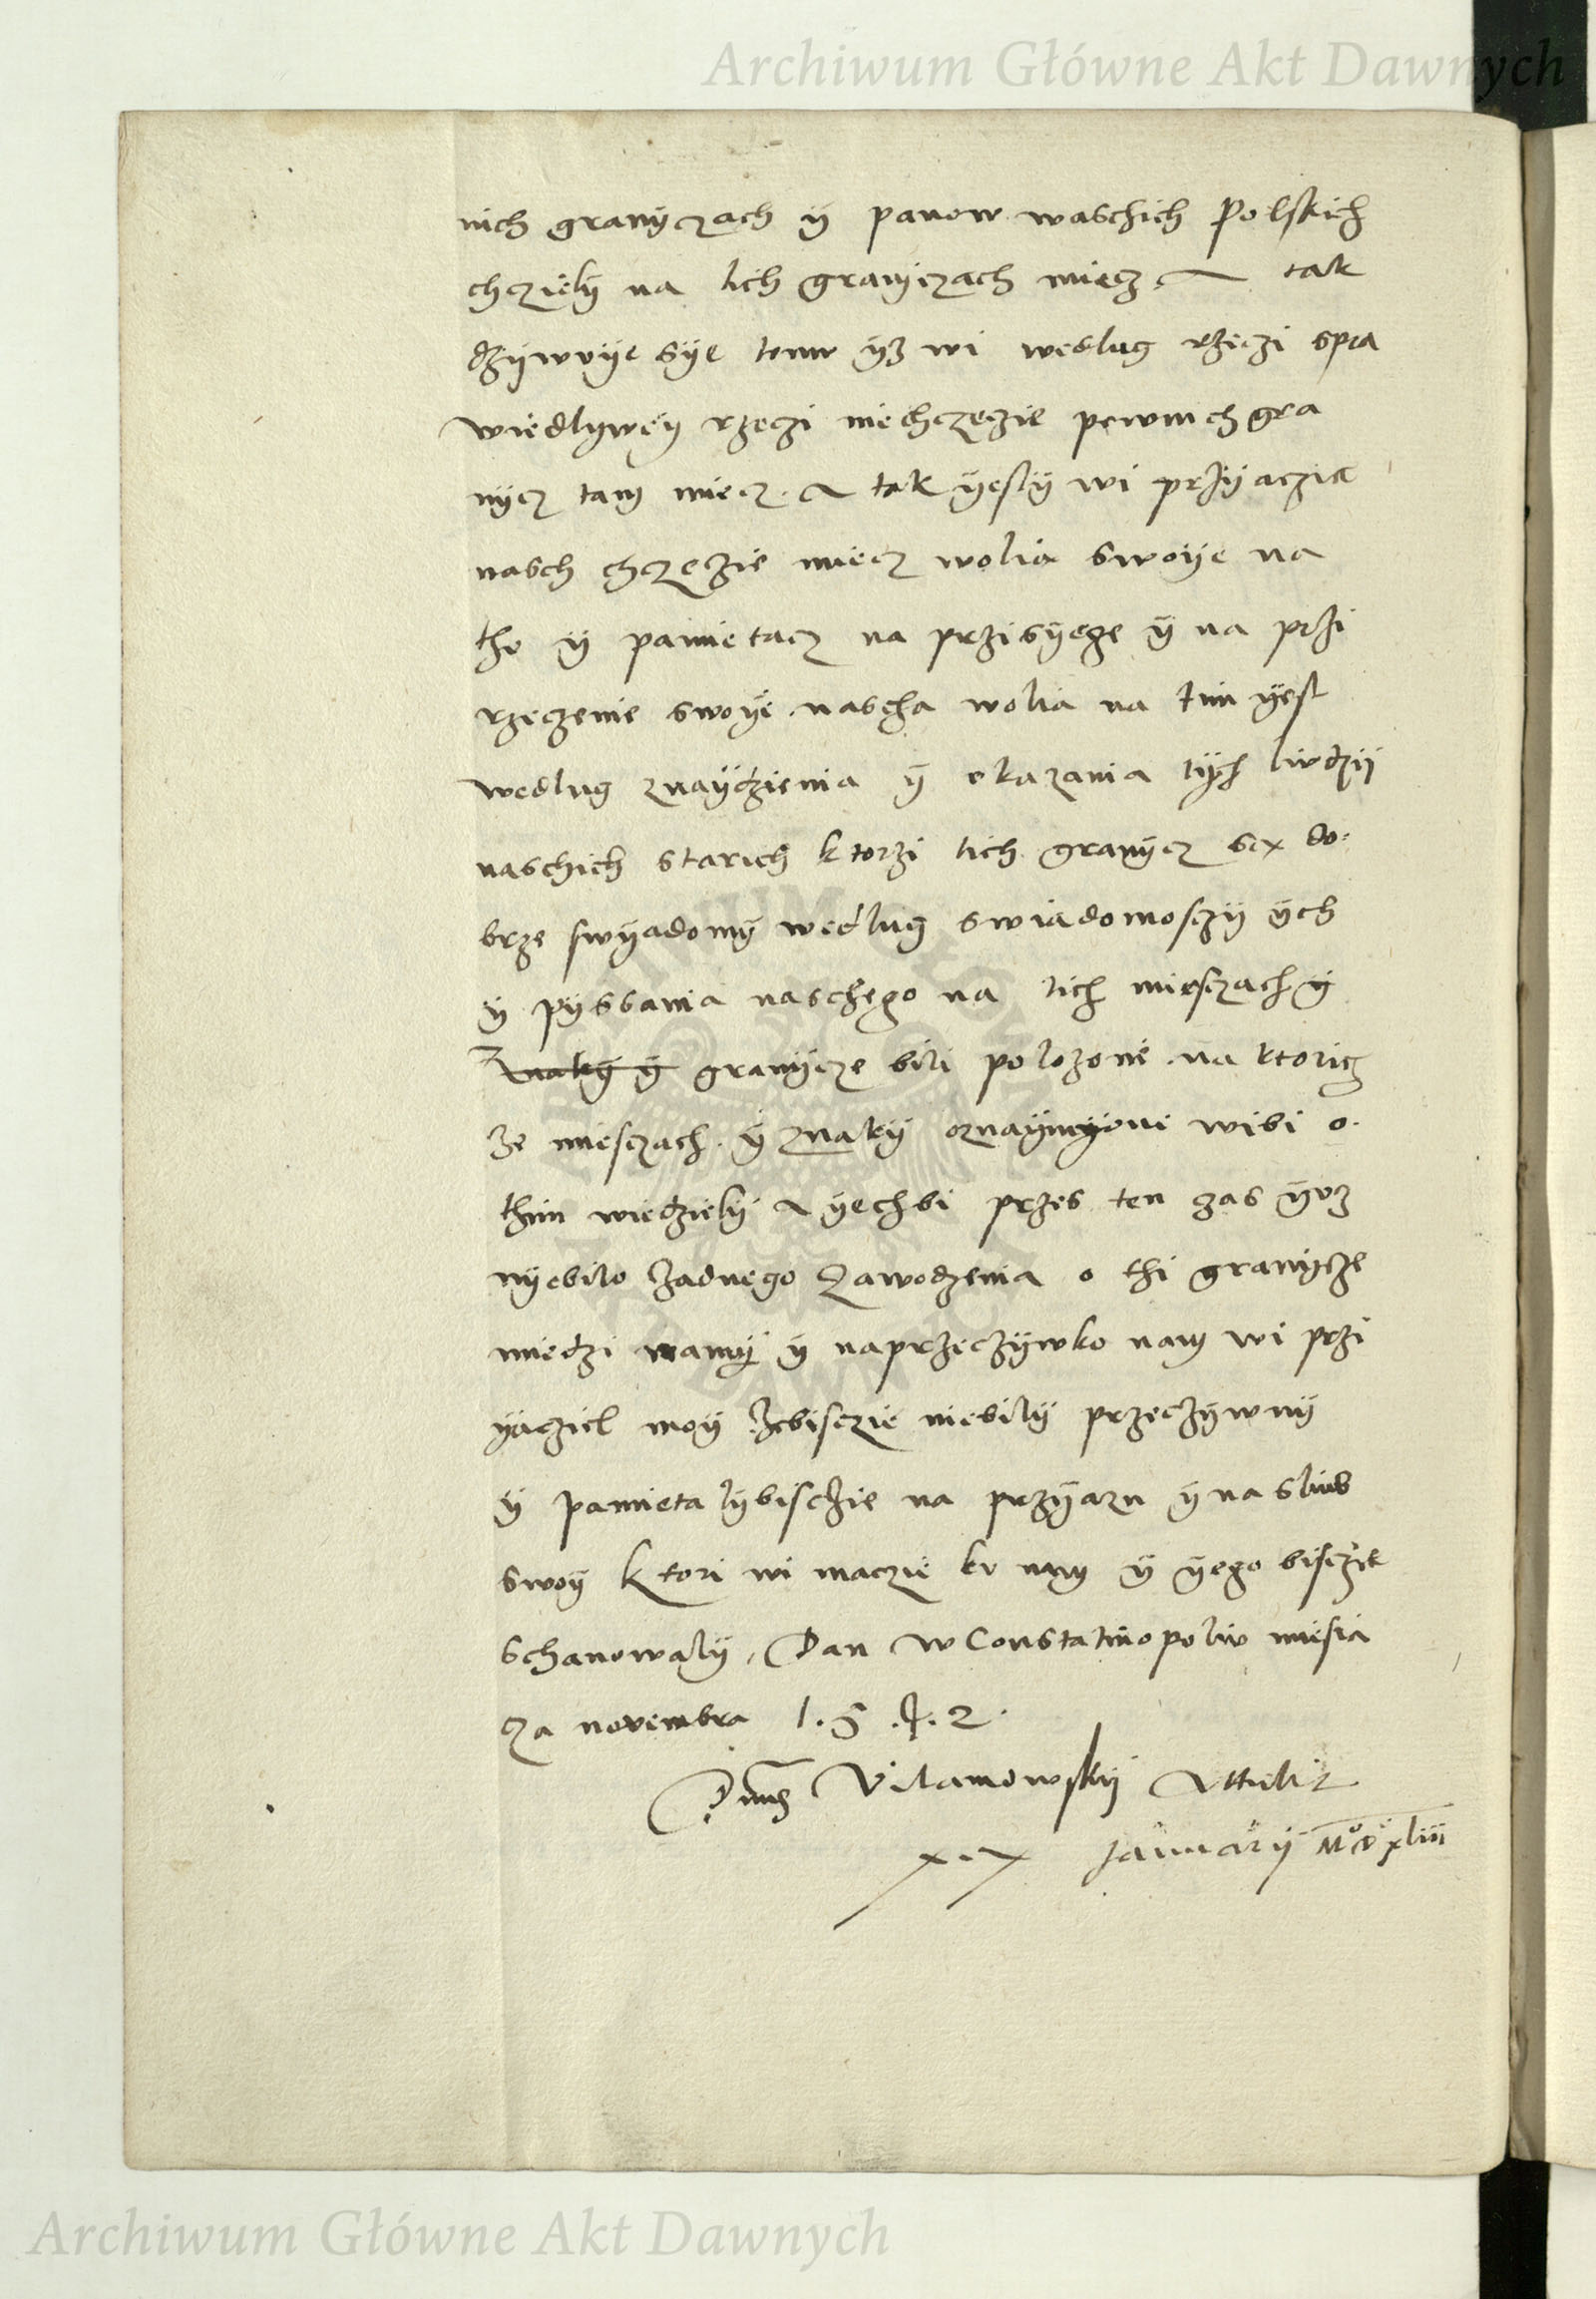 Archiwum Główne Akt Dawnych
nich granyczach ÿ panow waschich Polskich
chczięlÿ na tich granÿczach miecz A tak
dzÿwvÿe sÿe temu ÿz wi wedlug rzeczi spra
wiedlywey rzeczi niechczeczie pewnich gra
nÿcz tam miecz. A tak ÿeslÿ wi przÿaczie
nasch chczeczie miecz wolia swoÿe na
tho ÿ pamietacz na przisÿege ÿ na przi
rzeczenie swoÿe nascha wolia na tim ÿest
wedlug znaÿdzienia ÿ okazania tÿch liudzÿ
naschich starich ktorzi tich granÿcz sa do:
brze swÿadomÿ wedlug swiadomosczÿ ÿch
ÿ pÿssania naschego na tich miesczach ÿ
znakÿ ÿ granÿcze bili polozone na ktorich
ze miesczach ÿ znakÿ oznaÿmÿone wibi o.
thim wiedzielÿ A ÿechbi przes ten czas ÿvz
nÿebilo zadnego zawodzenia o thi granÿcze
miedzi wamÿ ÿ naprzeczÿwko nam wi przi
ÿacziel moÿ zebisczie niebilÿ przeczÿwnÿ
ÿ pamietalÿbisczie na przÿazn ÿ na sliub
swoÿ ktori wi maczie kv nam ÿ ÿego bisczie
schanowalÿ. Dan w Constatinopoliu miesia
cza novembra 1.5.4.2.
Dnus Vilamowskÿ Attulit
xx Januarÿ M D xliii
Archiwum Główne Akt Dawnych